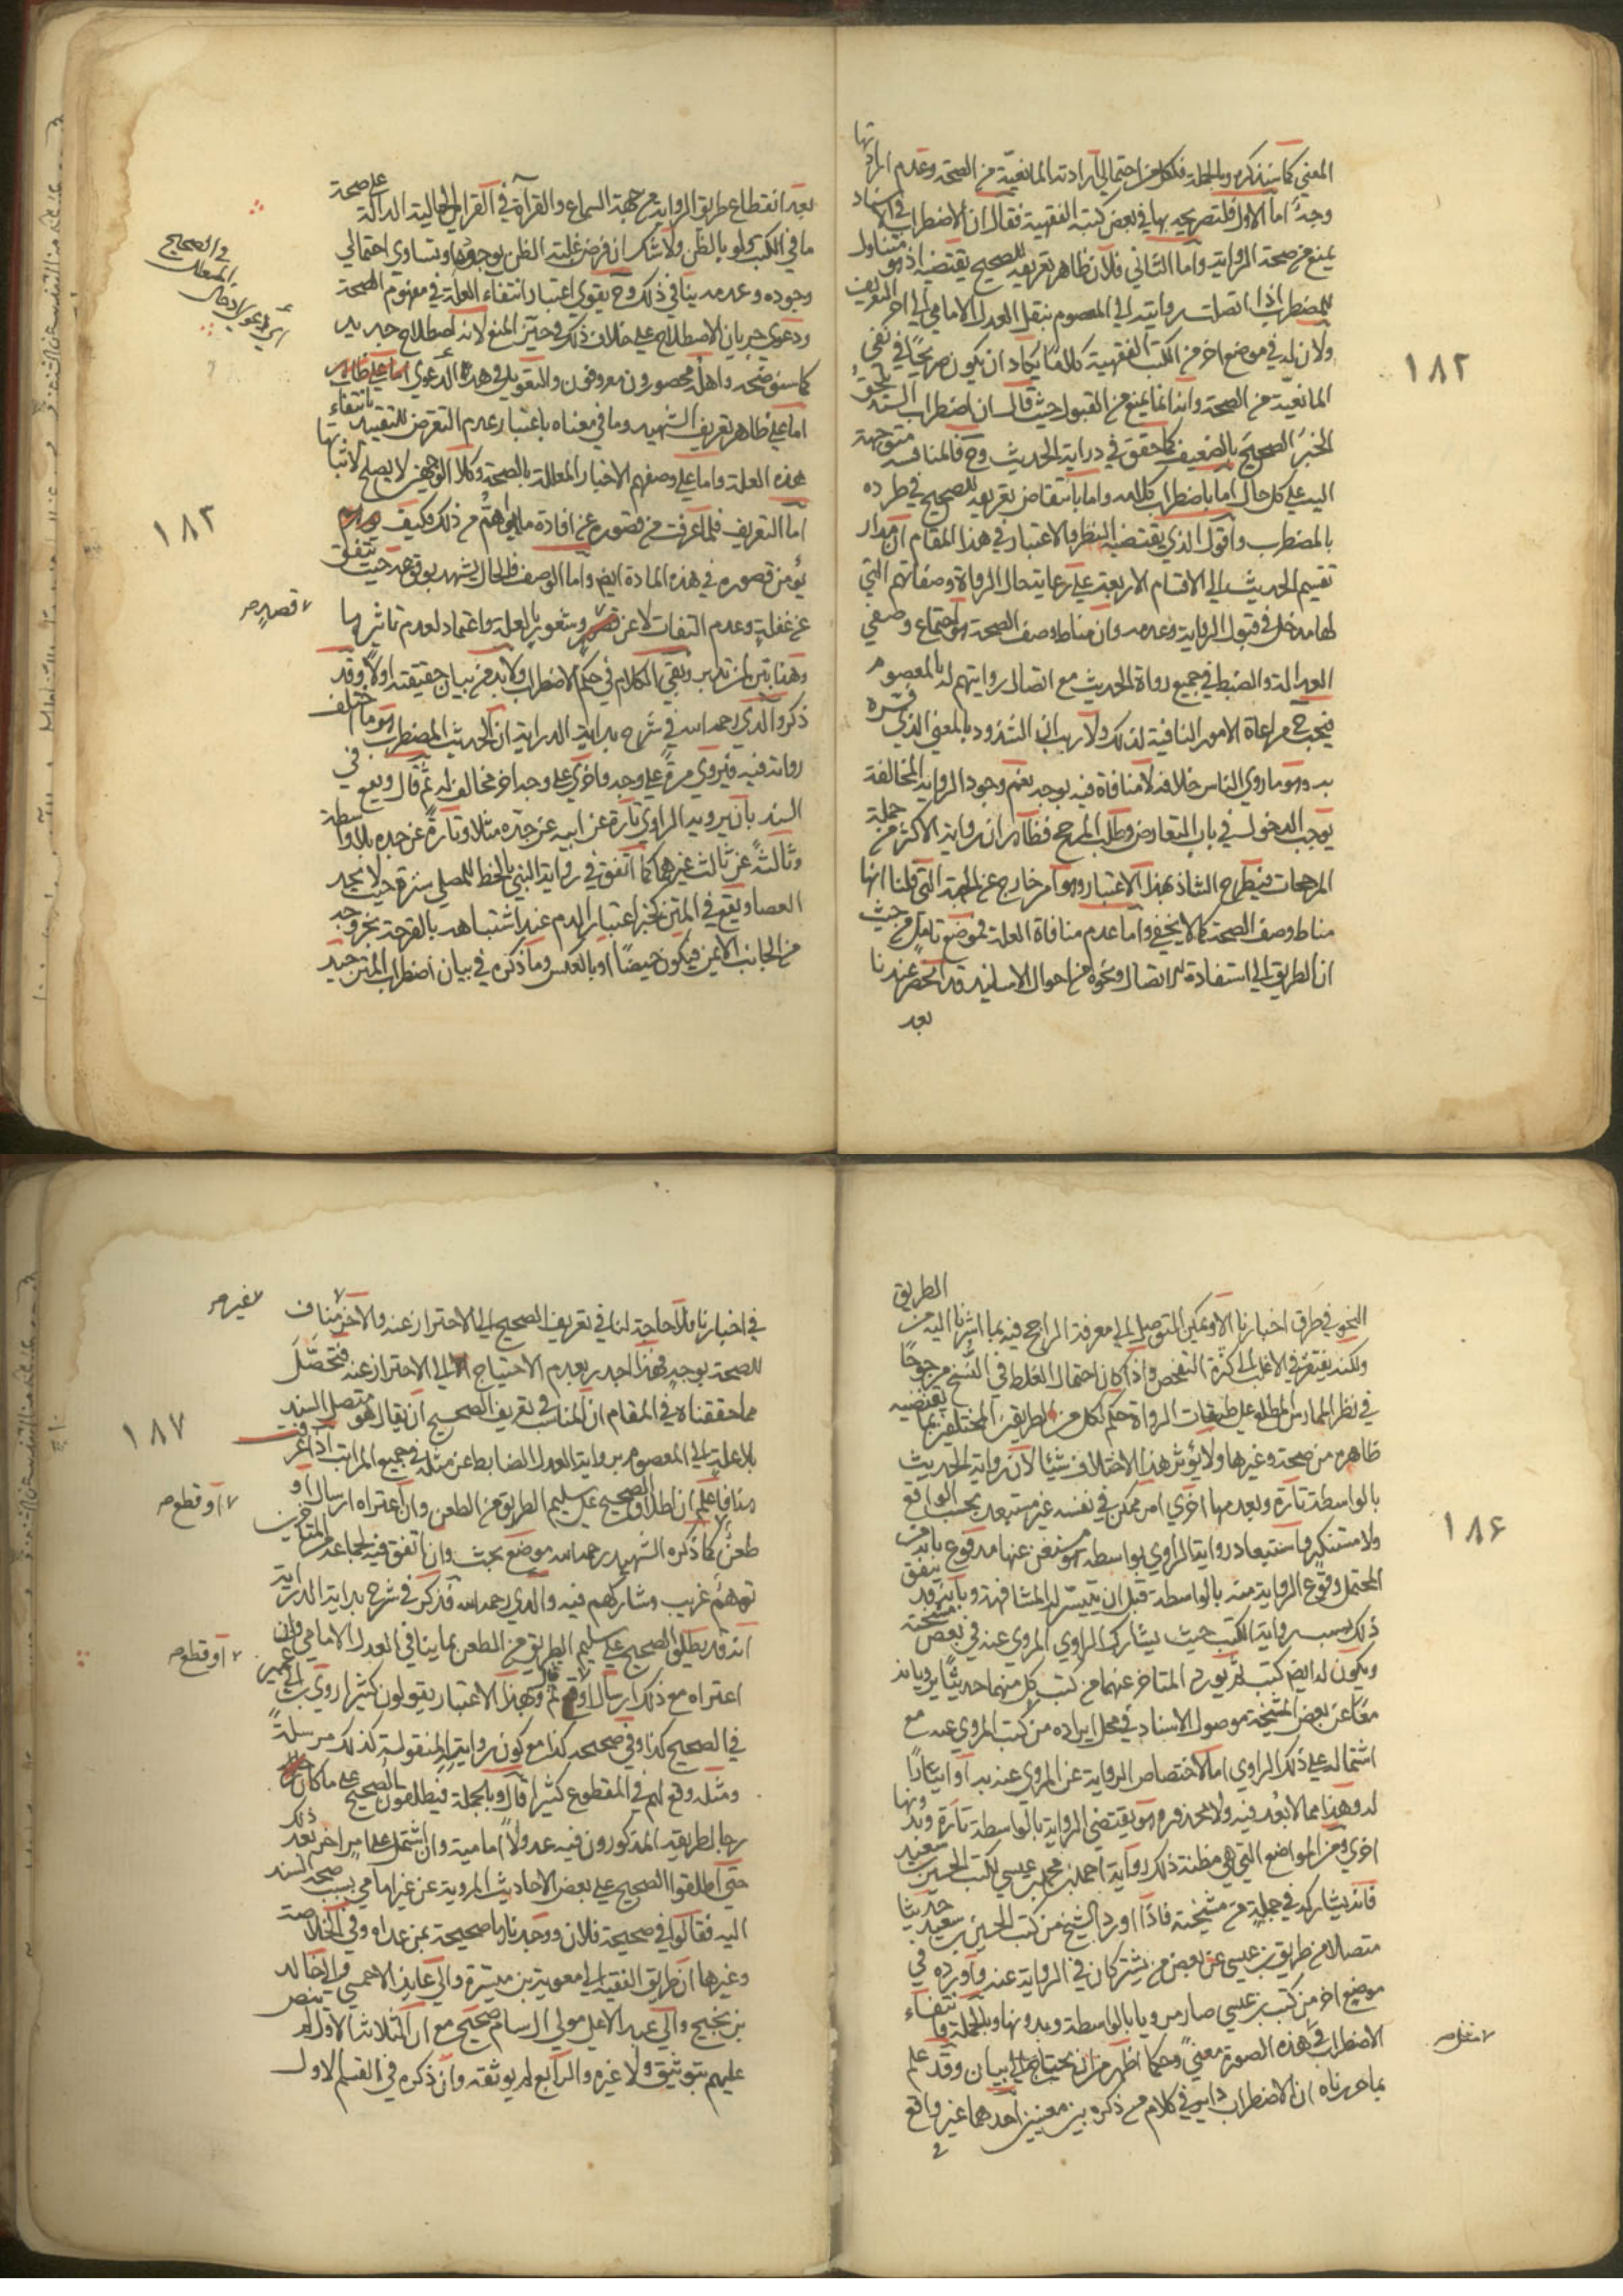 المعنى كما سنذكره وبالجملة فلكل من احتمالي ارادته المانعية من الصحة وعدم ارادتها
وجه اما الاول فلتصريحه بها في بعض كتبه الفقهية فقال ان الاضطراب في الاسناد
يمنع من صحة الرواية واما الثاني فلان ظاهر تعريفه للصحيح يقتضيه اذ هو متناول
للمضطرب اذا اتصلت روايته الى المعصوم بنقل العدل الامامي الى اخر التعريف
ولان له في موضع اخر من الكتب الفقهية كلاما يكاد ان يكون صريحا في نفي
المانعية من الصحة وانه انما يمنع من القبول حيث قال ان اضطراب السند يلحق
الخبر الصحيح بالضعيف كما حقق في دراية الحديث وح فالمنافسة متوجهة
اليه على كل حال اما باضطراب كلامه واما بانتقاض تعريفه للصحيح في طرده
بالمضطرب واقول الذي يقتضيه النظر والاعتبار في هذا المقام ان مدار
تقسيم الحديث الى الاقسام الاربعة على رعاية حال الرواة وصفاتهم التي
لها مدخل في قبول الرواية وعدمه وان مناط وصف الصحة هو اجتماع وصفي
العدالة والضبط في جميع رواة الحديث مع اتصال روايتهم له بالمعصوم
فيجب ح مراعاة الامور المنافية لذلك ولا ريب ان الشذوذ بالمعنى الذي فسره
به وهو ما روى الناس خلافه لا منافاة فيه بوجه نعم وجود الرواية المخالفة
يوجب الدخول في باب التعارض وطلب المرجح فظاهر ان رواية الاكثر من جملة
المرجحات فيطرح الشاذ بهذا الاعتبار وهو امر خارج عن الجهة التي قلنا انها
مناط وصف الصحة كما لا يخفى واما عدم منافاة العلة فموضع تامل من حيث
ان الطريق الى استفادة الاتصال ونحوه من احوال الاسانيد قد انحصر عندنا
بعد
١٨٢
بعد انقطاع طريق الرواية من جهة السماع والقراءة في القرائن الحالية الدالة على صحة
ما في الكتب ولو بالظن ولا شك ان فرض غلبة الظن بوجود او تساوي احتمالي
وجوده وعدمه ينافي ذلك وح يقوى اعتبار انتفاء العلة في مفهوم الصحة
ودعوى جريان الاصطلاح على خلاف ذلك في حيز المنع لانه اصطلاح جديد
كما سنوضحه واهله محصورون معروفون والتعويل في هذه الدعوى
اما على ظاهر تعريف الشهيد وما في معناه باعتبار عدم التعرض للتقييد بانتفاء
هذه العلة واما على وصفهم الاخبار المعللة بالصحة وكلا الوجهين لا يصلح لاثباتها
اما التعريف فلما عرفت من قصوره عن افادة ما هو اهم من ذلك فكيف
يؤمن قصوره في هذه المادة ايض واما الوصف فالحال يشهد بوقوعه حيث يتفق
عن غفلة وعدم التفات لا عن وشعور بالعلة واعتماد لعدم تاثيرها
وهذا بين لمن تدبر وبقي الكلام في حكم الاضطراب ولا بد من بيان حقيقته اولا وقد
ذكر والدي رحمه الله في شرح بداية الدراية ان الحديث المضطرب هو ما اختلف
رواته فيه فيروى مرة على وجه واخرى على وجه اخر مخالف له ثم قال ويقع في
السند بان يرويه الراوي تارة عن ابيه عن جده مثلا وتارة عن جده بلا واسطة
وثالثة عن ثالث غيرهما كما اتفق في رواية النبي بالخط للمصلي سترة حيث لا يجد
العصا ويقع في المتن كخبر اعتبار الدم عند اشتباهه بالقرحة بخروجه
من الجانب الايمن فيكون حيضا او بالعكس وما ذكره في بيان اضطراب المتن جيد
في الصحيح
المعلل
١٨٣
قصد صح
الطريق
النحو في طرق اخبارنا الا ويمكن التوصل الى معرفة الراجح فيه بما اشرنا اليه من
ولكنه يفتقر في الاغلب الى كثرة التفحص واذا كان احتمال الغلط في النسخ مرجوحا
في نظر الممارس المطلع على طبقات الرواة حكم لكل من الطريقين المختلفين بما يقتضيه
ظاهره من صحة وغيرها ولا يؤثر هذا الاختلاف شيئا لان رواية الحديث
بالواسطة تارة وبعدمها اخرى امر ممكن في نفسه غير مستبعد بحسب الواقع
ولا مستنكر واستبعاد رواية الراوي بواسطة هو مستغن عنها مدفوع بانه من
المحتمل وقوع الرواية منه بالواسطة قبل ان يتيسر له المشافهة وبانه قد يتفق
ذلك بسبب رواية الكتب حيث يشارك الراوي المروي عنه في بعض مشيخته
ويكون له ايض كتب ثم يورد المتاخر عنهما من كتب كل منهما حديثا يرويانه
معا عن بعض المشيخة موصول الاسناد في محل ايراده من كتب المروي عنه مع
اشتماله على ذلك الراوي اما لاختصاص الرواية عن المروي عنه به او ايثارا
له وهذا مما لا بعد فيه ولا محذور وهو يقتضي الرواية بالواسطة تارة وبدونها
اخرى ومن المواضع التي هي مظنة ذلك رواية احمد بن محمد بن عيسى لكتب الحسين بن سعيد
فانه يشاركه في جملة من مشيخته فاذا اورد الشيخ من كتب الحسين بن سعيد حديثا
متصلا من طريق ابن عيسى عن بعض من يشتركان في الرواية عنه واورده في
موضع اخر من كتب ابن عيسى صار مرويا بالواسطة وبدونها وبالجملة فانتفاء
الاضطراب في هذه الصورة معنى وحكما اظهر من ان يحتاج الى بيان وقد علم
بما حررناه ان الاضطراب داير في كلام من ذكره بين معنيين احدهما غير واقع
في
١٨۶
في اخبارنا فلا حاجة لنا في تعريف الصحيح الى الاحتراز عنه والاخر مناف
للصحة بوجه فهذا اجدر بعدم الاحتياج الى الاحتراز عنه فتحصل
مما حققناه في المقام ان المناسب في تعريف الصحيح ان يقال هو متصل السند
بلا علة الى المعصوم برواية العدل الضابط عن مثله في جميع المراتب اذا عرفت
هذا فاعلم ان اطلاق الصحيح على سليم الطريق من الطعن وان اعتراه ارسال او
طعن كما ذكره الشهيد رحمه الله موضع بحث وان اتفق فيه لجماعة من المتاخرين
توهم غريب وشاركهم فيه والدي رحمه الله فذكر في شرح بداية الدراية
انه قد يطلق الصحيح على سليم الطريق من الطعن بما ينافي العدل الامامي وان
اعتراه مع ذلك ارسال ثم قال وبهذا الاعتبار يقولون كثيرا روى ابن ابي عمير
في الصحيح كذا وفي صحيحه كذا مع كون روايته المنقولة كذلك مرسلة
ومثله وقع لهم في المقطوع كثيرا قال وبالجملة فيطلقون الصحيح على ما كان
رجال طريقه المذكورون فيه عدولا امامية وان اشتمل على امر اخر بعد ذلك
حتى اطلقوا الصحيح على بعض الاحاديث المروية عن غير امامي بسبب صحة السند
اليه فقالوا في صحيحة فلان ووجدناها صحيحة بمن عداه وفي الخلاصة
وغيرها ان طريق الفقيه الى معوية بن ميسرة والى عايذ الاحمسي والى خالد
بن نجيح والى عبد الاعلى مولى ال سام صحيح مع ان الثلاثة الاول لم ينص
عليهم بتوثيق ولا غيره والرابع لم يوثقه وان ذكره في القسم الاول
غير صح
١٨٧
او قطع صح
او قطع صح